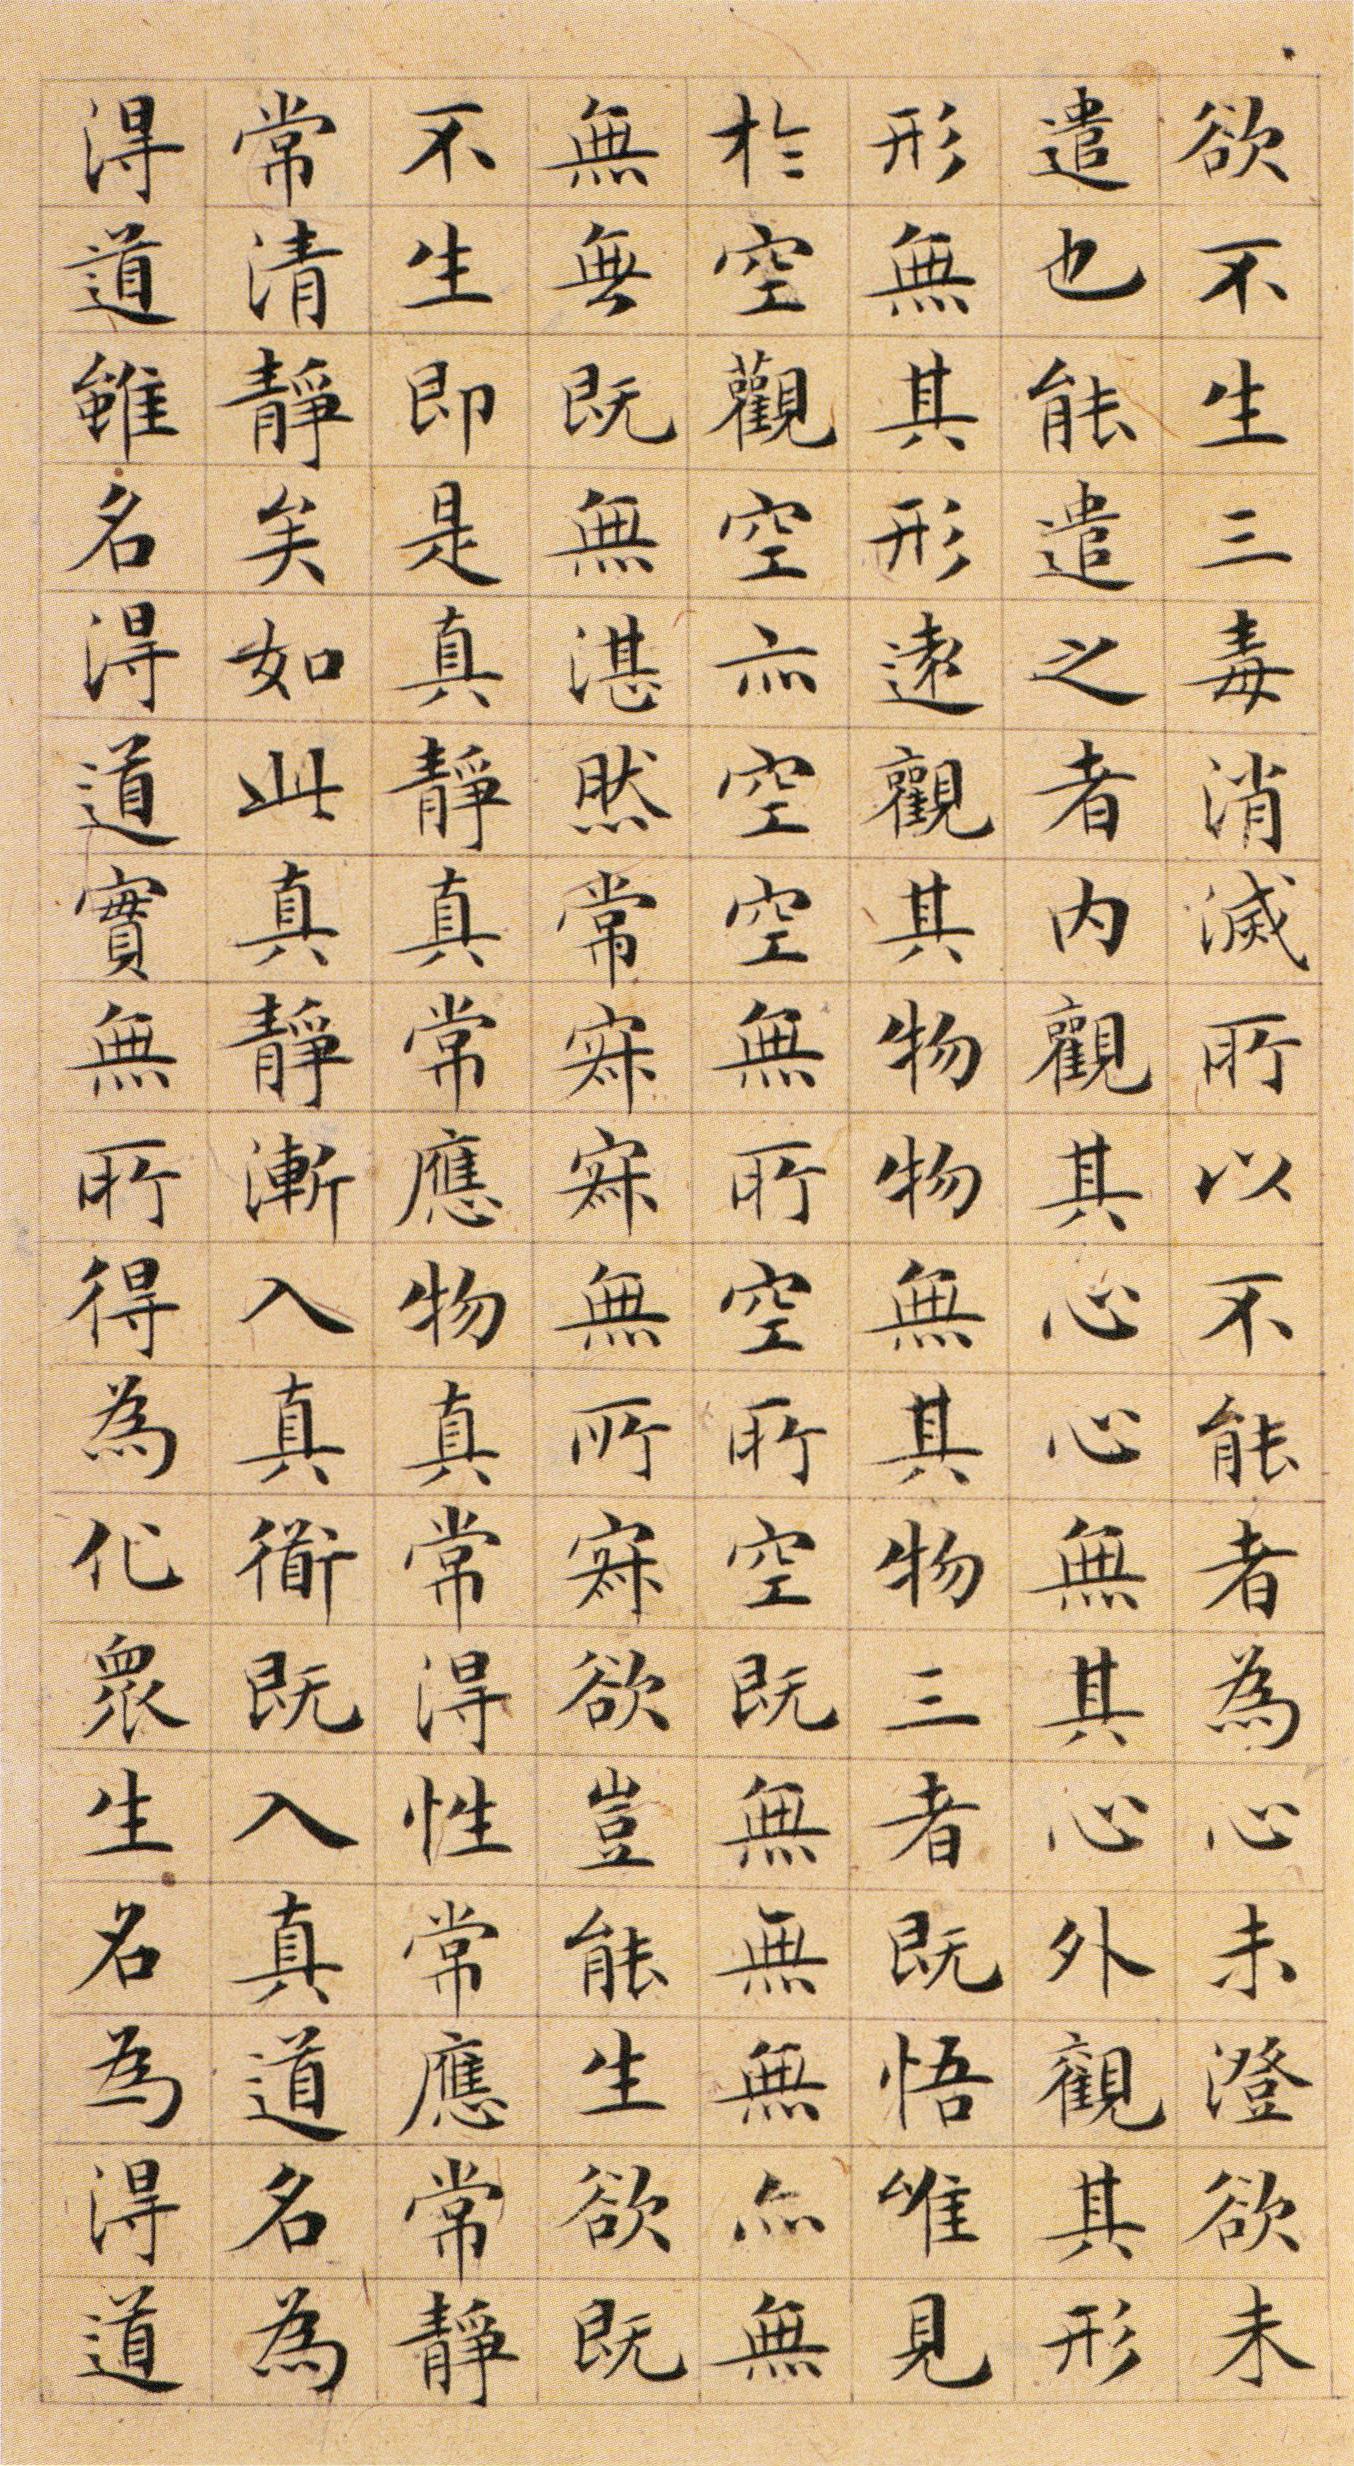 欲不生三毒消滅所以不能者為心未澄欲未
遣也能遣之者內觀其心心無其心外觀其形
形無其形遠觀其物物無其物三者既悟唯見
於空觀空亦空空無所空所空既無無無亦無
無無既無湛然常寂寂無所寂欲豈能生欲既
不生即是真靜真常應物真常得性常應常靜
常清靜矣如此真靜漸入真衟既入真道名為
得道雖名得道實無所得為化眾生名為得道